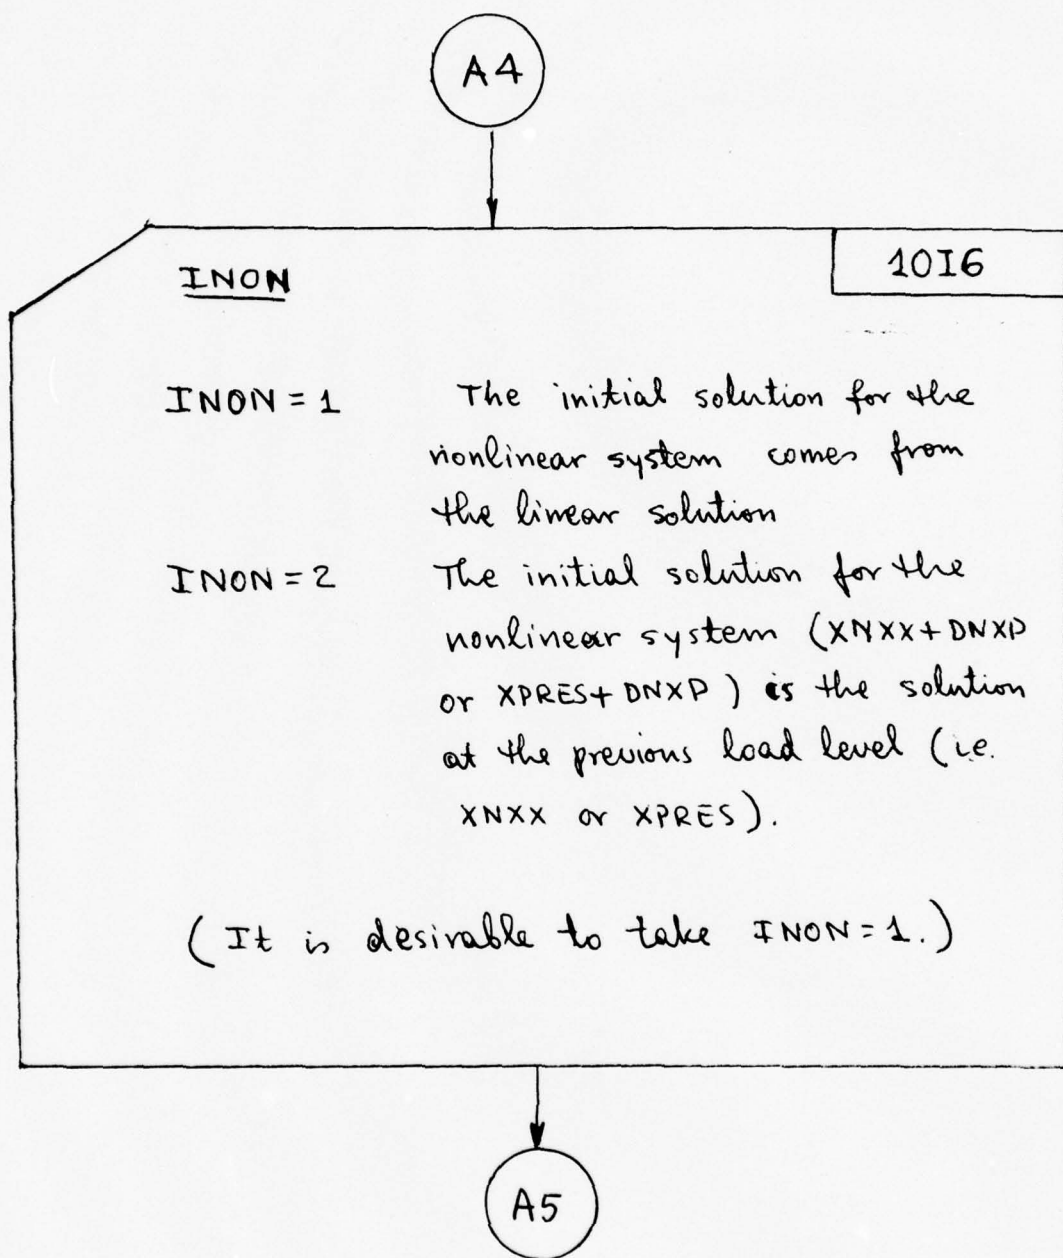 A4
INON 10I6
INON = 1 The initial solution for the
nonlinear system comes from
the linear solution
INON = 2 The initial solution for the
nonlinear system (XNXX+DNXP
or XPRES+DNXP) is the solution
at the previous load level (i.e.
XNXX or XPRES).
(It is desirable to take INON=1.)
A5